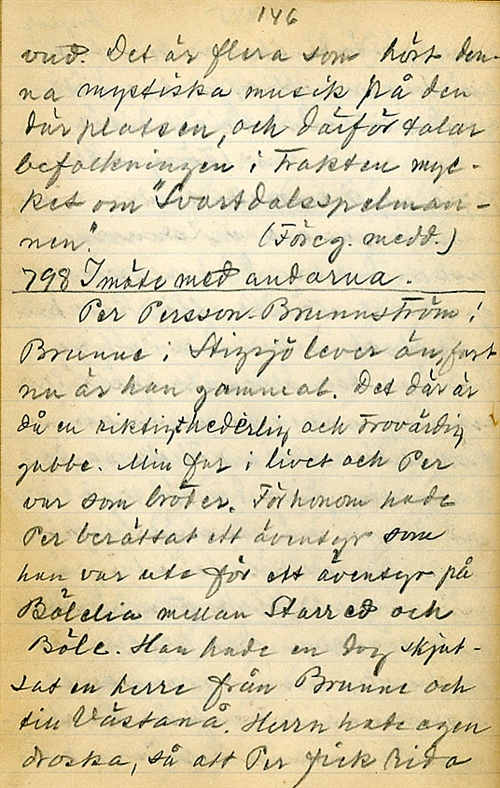 146
vud. Det är flera som hört den-
na mystiska musik på den
där platsen, och därför talar
befolkningen i trakten myc-
ket om "Svartdalsspelman-
nen". (Föreg. medd.)
798 I möte med andarna.
Per Persson-Brunnström i
Brunne i Stigsjö lever än, fast
nu är han gammal. Det där är
då en riktigt hederlig och trovärdig
gubbe. Min far i livet och Per
var som bröder. För honom hade
Per berättat ett äventyr som
han var ute för ett äventyr på
Bölelia mellan Starred och
Böle. Han hade en dag skjut-
sat en herre från Brunne och
till Västanå. Herrn hade egen
droska, så att Per fick rida